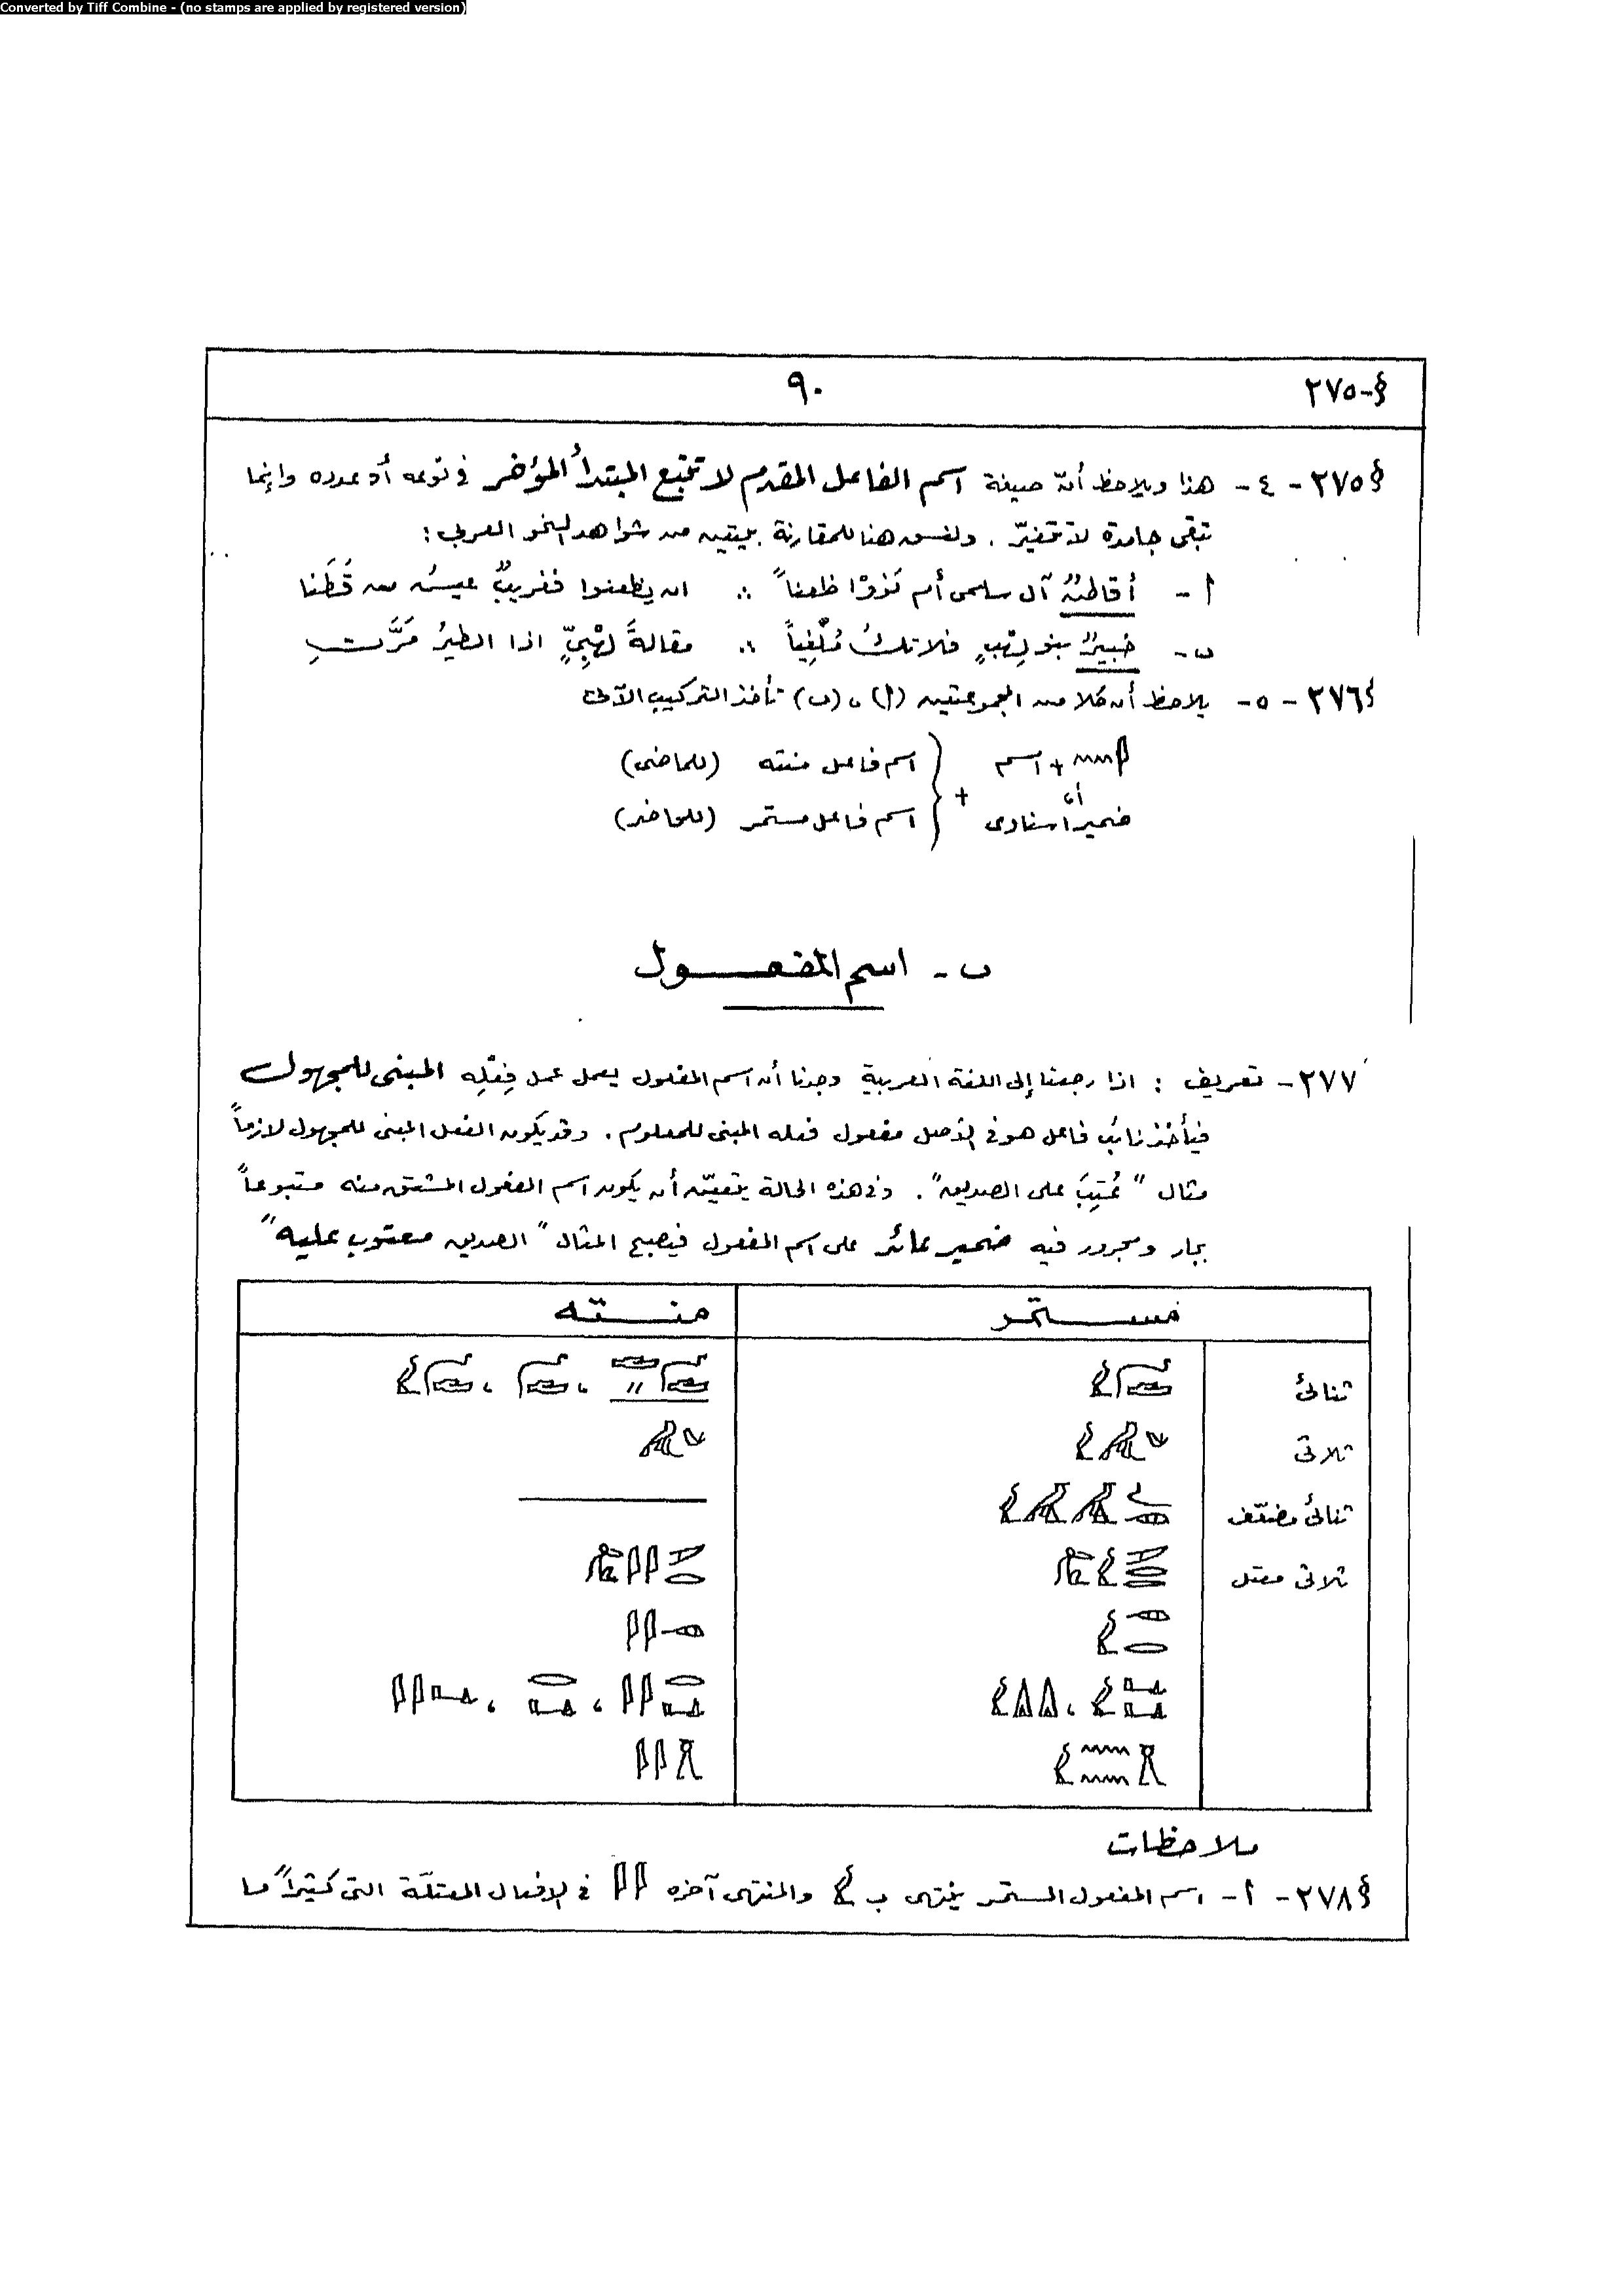 Converted by Tiff Combine - (no stamps are applied by registered version)
§-٢٧٥ ٩٠
§٢٧٥ - ٤ - هذا ويلاحظ أنّ صيغة اسم الفاعل المقدم لا تتبع المبتدأ المؤخر فى نوعه أو عدده وإنما
تبقى جامدة لا تتغيّر . ولنسق هنا للمقارنة بيتين من شواهد النحو العربى :
أ - أقاطنٌ آل سلمى أم نَوَوْا ظعناً ∴ ان يظعنوا فغريبٌ عيشُ من قَطَنا
ب - خبيرٌ بنو لِهْبٍ فلا تكُ مُلْغِياً ∴ مقالةَ لِهْبِىٍّ اذا الطيرُ مَرَّتِ
§٢٧٦ - ٥ - يلاحظ أن كلا من المجموعتين (أ) ، (ب) تأخذ التركيب الآتى
𓇋𓈖 + اسم } اسم فاعل منته (للماضى)
أى +
ضمير اسنادى } اسم فاعل مستمر (للحاضر)
ب - اسم المفعول
٢٧٧ - تعريف : اذا رجعنا إلى اللغة العربية وجدنا أن اسم المفعول يعمل عمل فِعْلِه المبنى للمجهول
فيأخذ نائب فاعل هو فى الأصل مفعول فعله المبنى للمعلوم . وقد يكون الفعل المبنى للمجهول لازماً
مثال " عُتِبَ على الصديق " . وفى هذه الحالة يتعيّن أن يكون اسم المفعول المشتق منه متبوعاً
بجار ومجرور فيه ضمير عائد على اسم المفعول فيصبح المثال " الصديق معتوب عليه "
مستمر منته
ثنائى
ثلاثى
ثنائى مضعّف
ثلاثى معتل
ملاحظات
§٢٧٨ - أ - اسم المفعول المستمر ينتهى ب 𓅱 والمنتهى آخره 𓇋𓇋 فى الافعال المعتلّة التى كثيراً ما